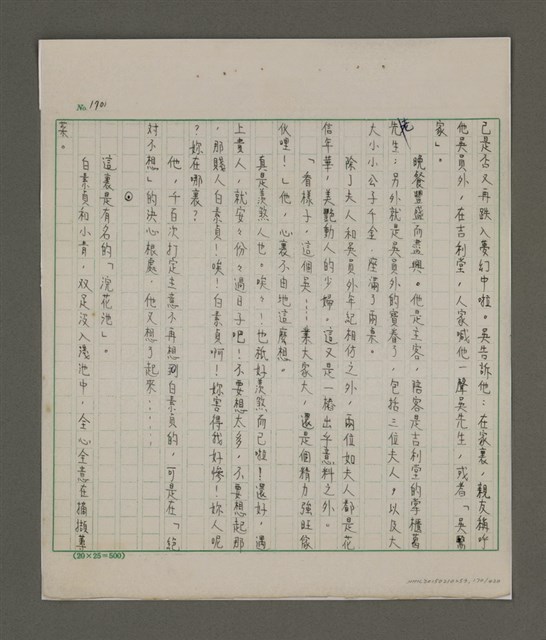 No. 1701
己是否又再跌入夢幻中啦。吳告訴他：在家裏，親友稱呼
他吳員外，在吉利堂，人家喊他一聲吳先生，或者「吳醫
家」。
晚餐豐盛而盡興。他是主客，陪客是吉利堂的掌櫃葛
老先生；另外就是吳員外的寶眷了，包括三位夫人，以及大
大小小公子千金，座滿了兩桌。
除了夫人和吳員外年紀相仿之外，兩位如夫人都是花
信年華，美艷動人的少婦，這又是一樁出乎意料之外。
「看樣子，這個吳……業大家大，還是個精力強旺傢
伙哩！」他，心裏不由地這麼想。
真是羨煞人也，唉々！也祗好羨煞而已啦！還好，遇
上貴人，就安々份々過日子吧！不要想太多，不要想起那
，那賤人白素貞！唉！白素貞啊！妳害得我好慘！妳人呢
？妳在哪裏？
他，千百次打定主意不再想到白素貞的，可是在「絕
對不想」的決心根處，他又想了起來……
⊙
這裏是有名的「浣花池」。
白素貞和小青，双足沒入湯池中，全心全意在摘擷藥
茶。
(20×25=500)